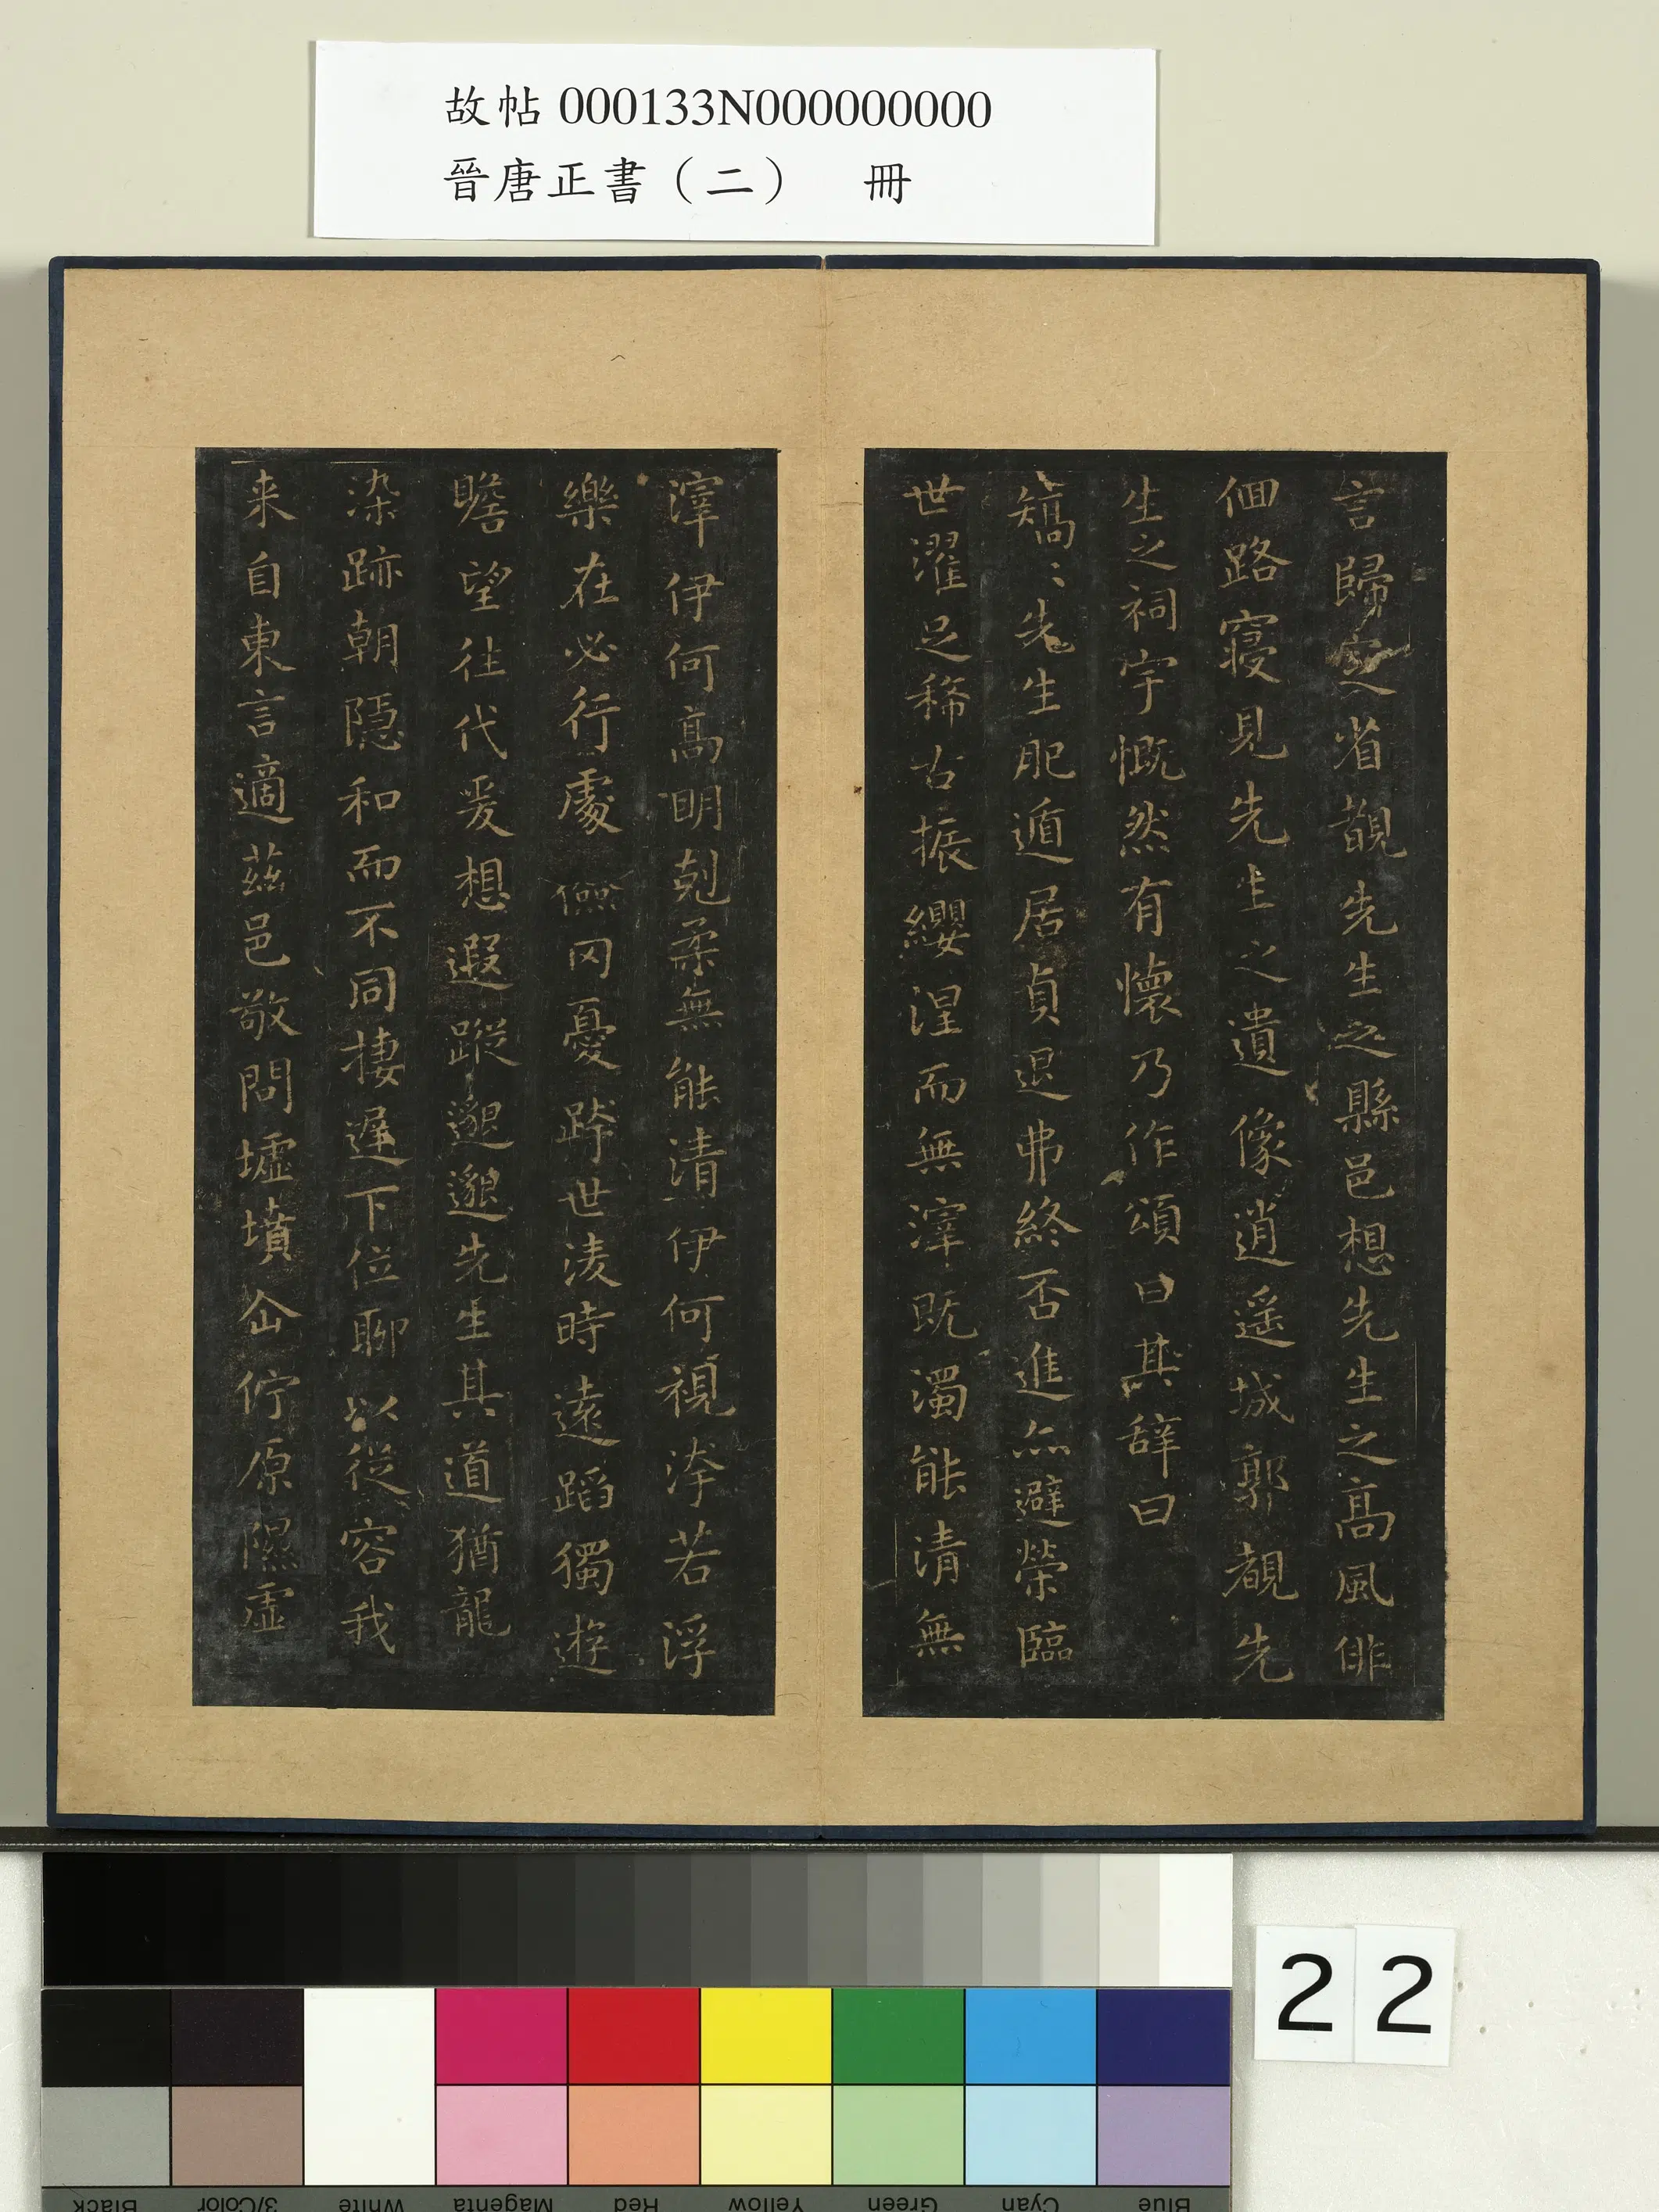 故帖 000133N000000000
晉唐正書（二） 冊
言歸定省覩先生之縣邑想先生之高風俳
佪路寝見先生之遺像逍遥城郭覩先
生之祠宇慨然有懷乃作頌曰其辞曰
矯〻先生肥遁居貞退弗終否進亦避榮臨
世濯足稀古振纓涅而無滓既濁能清無
滓伊何高明剋柔無能清伊何視洿若浮
樂在必行處儉罔憂跨世淩時遠蹈獨遊
瞻望往代爰想遐蹤邈邈先生其道猶龍
染跡朝隱和而不同棲遲下位聊以從容我
来自東言適茲邑敬問墟墳企佇原隰虛
22
Black
3/Color
White
Magenta
Red
Yellow
Green
Cyan
Blue